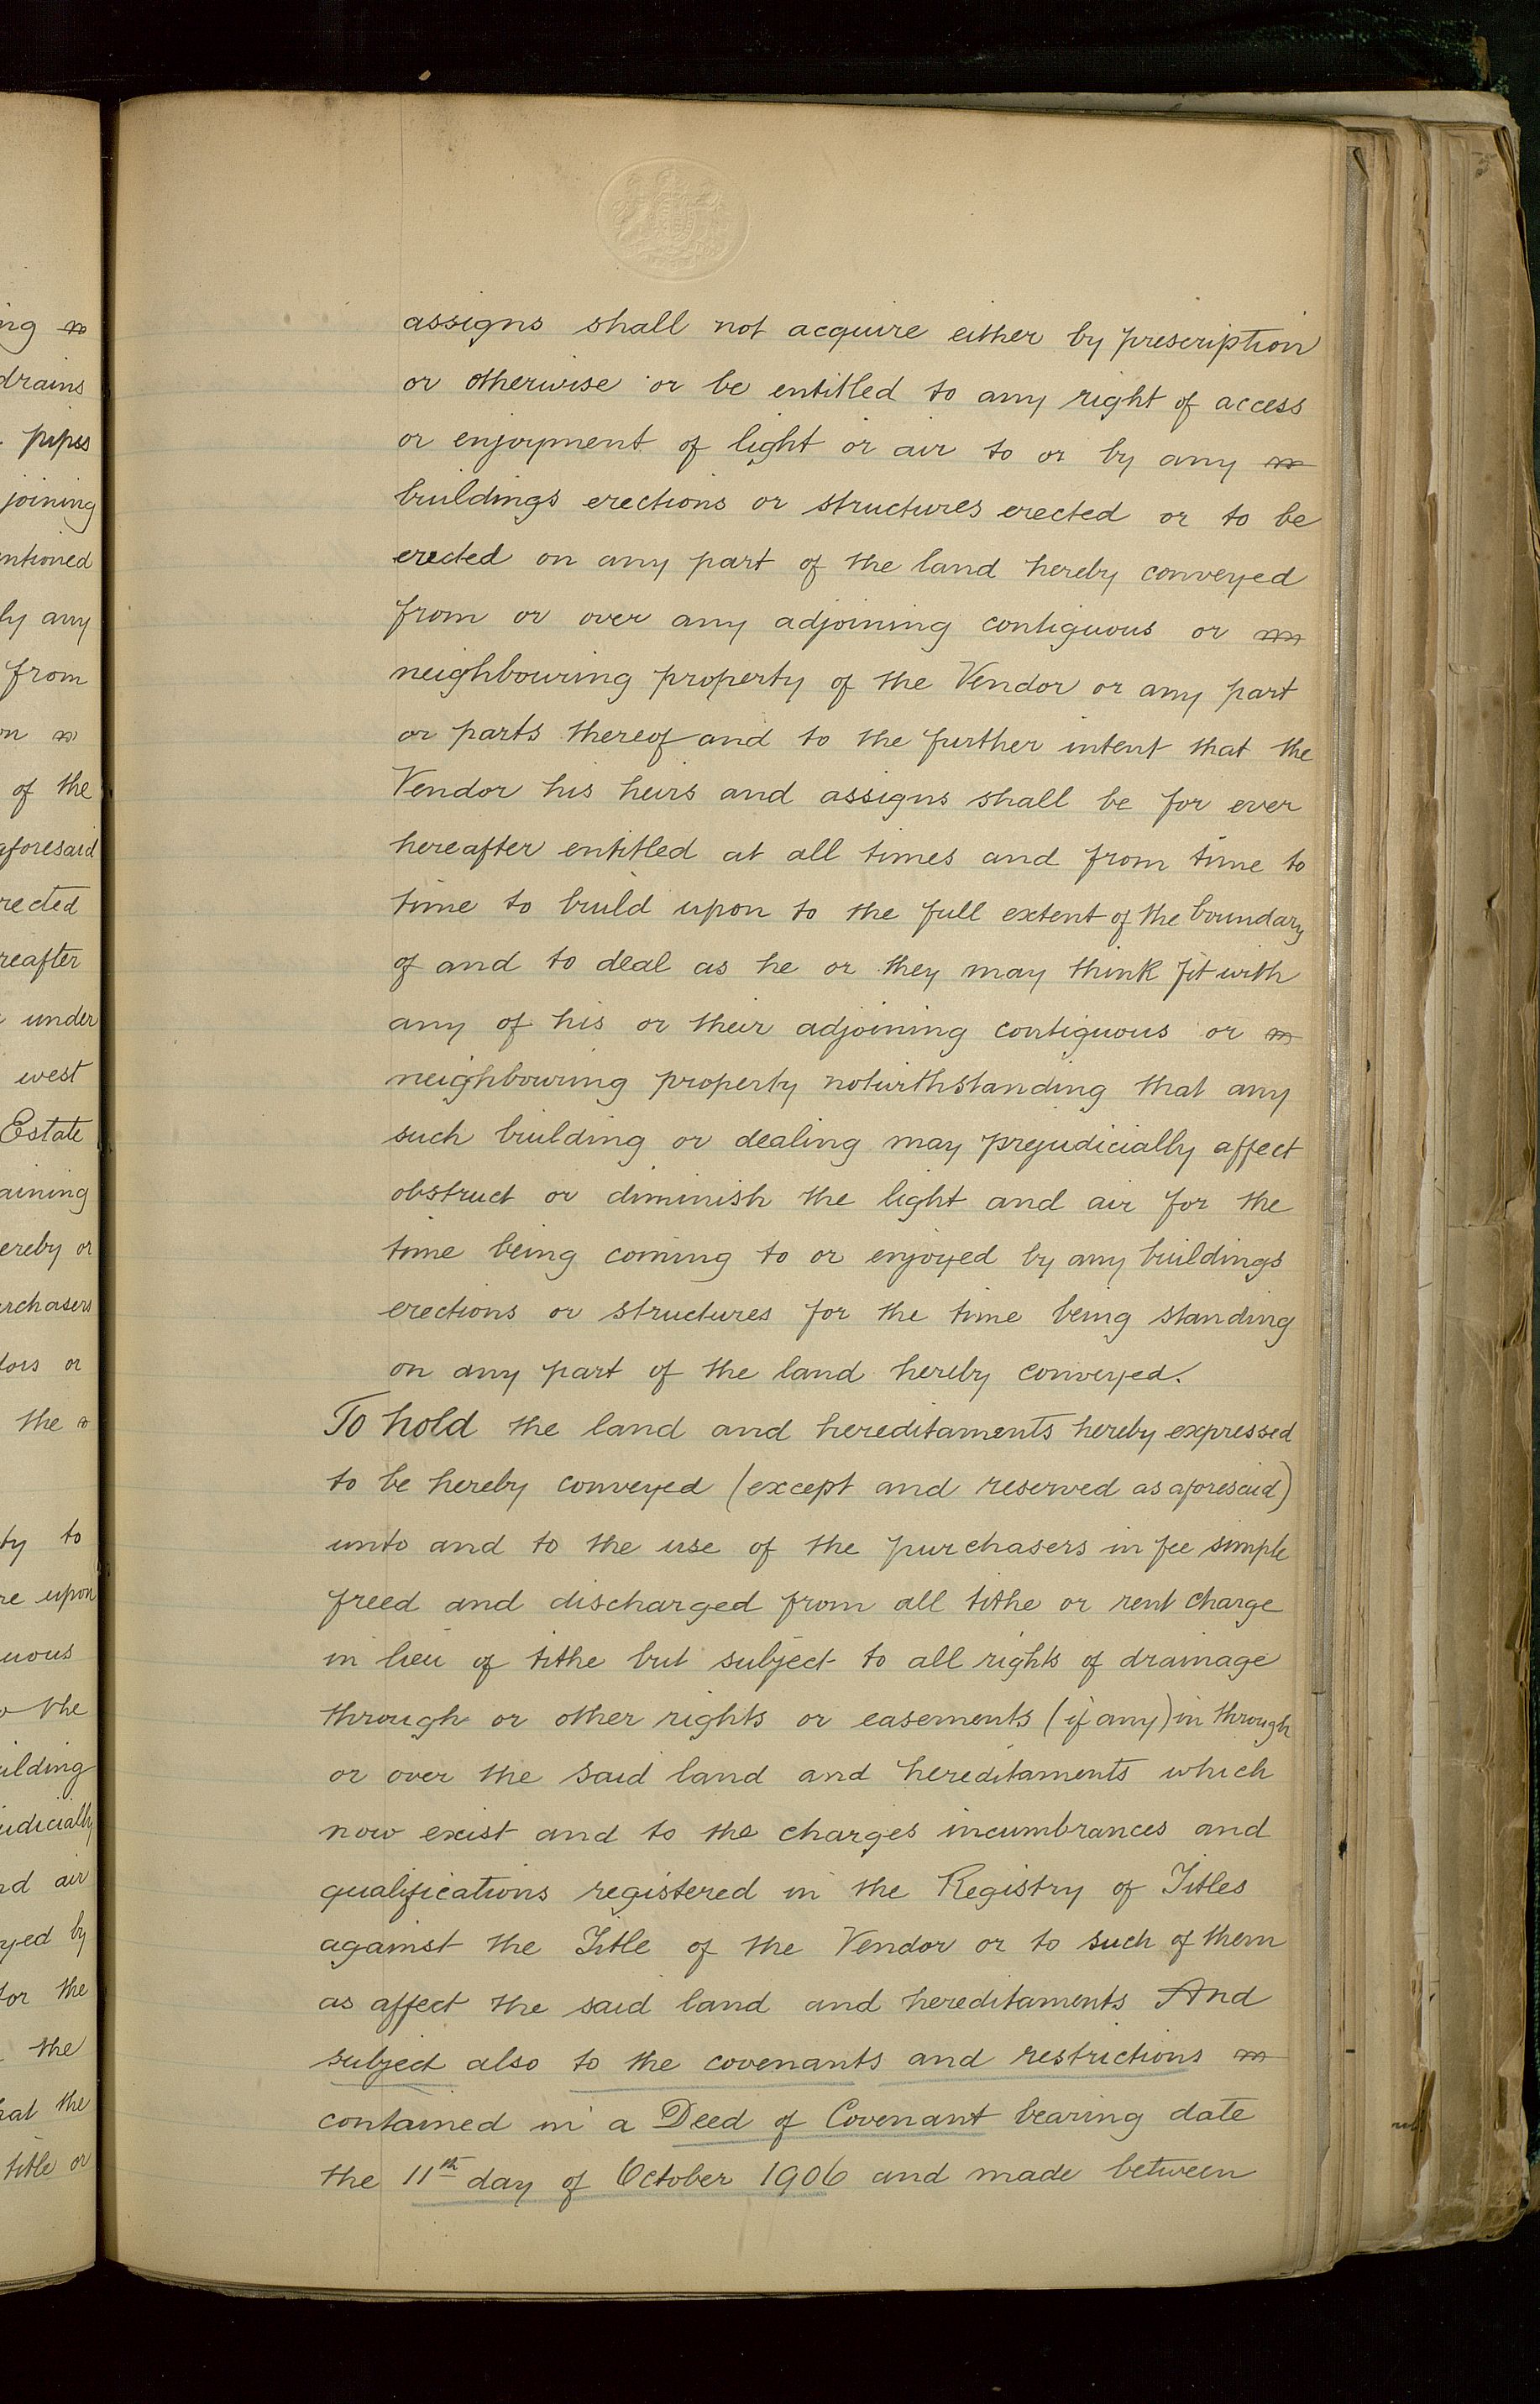 assigns shall not acquire either by prescription
or otherwise or be entitled to any right of access
or enjoyment of light or air to or by any
buildings erections or structures erected or to be
erected on any part of the land hereby conveyed
from or over any adjoining contiguous or
neighbouring property of the Vendor or any part
or parts thereof and to the further intent that the
Vendor his heirs and assigns shall be for ever
hereafter entitled at all times and from time to
time to build upon to the full extent of the boundary
of and to deal as he or they may think fit with
any of his or their adjoining contiguous or
neighbouring property notwithstanding that any
such building or dealing may prejudicially affect
obstruct or diminish the light and air for the
time being coming to or enjoyed by any buildings
erections or structures for the time being standing
on any part of the land hereby conveyed.
To hold the land and hereditaments hereby expressed
to be hereby conveyed (except and reserved as aforesaid)
unto and to the use of the purchasers in fee simple
freed and discharged from all tithe or rent charge
in lieu of tithe but subject to all rights of drainage
through or other rights or easements (if any) in through
or over the said land and hereditaments which
now exist and to the charges incumbrances and
qualifications registered in the Registry of Titles
against the Title of the Vendor or to such of them
as affect the said land and hereditaments And
subject also to the covenants and restrictions
contained in a Deed of Covenant bearing date
the 11th day of October 1906 and made between